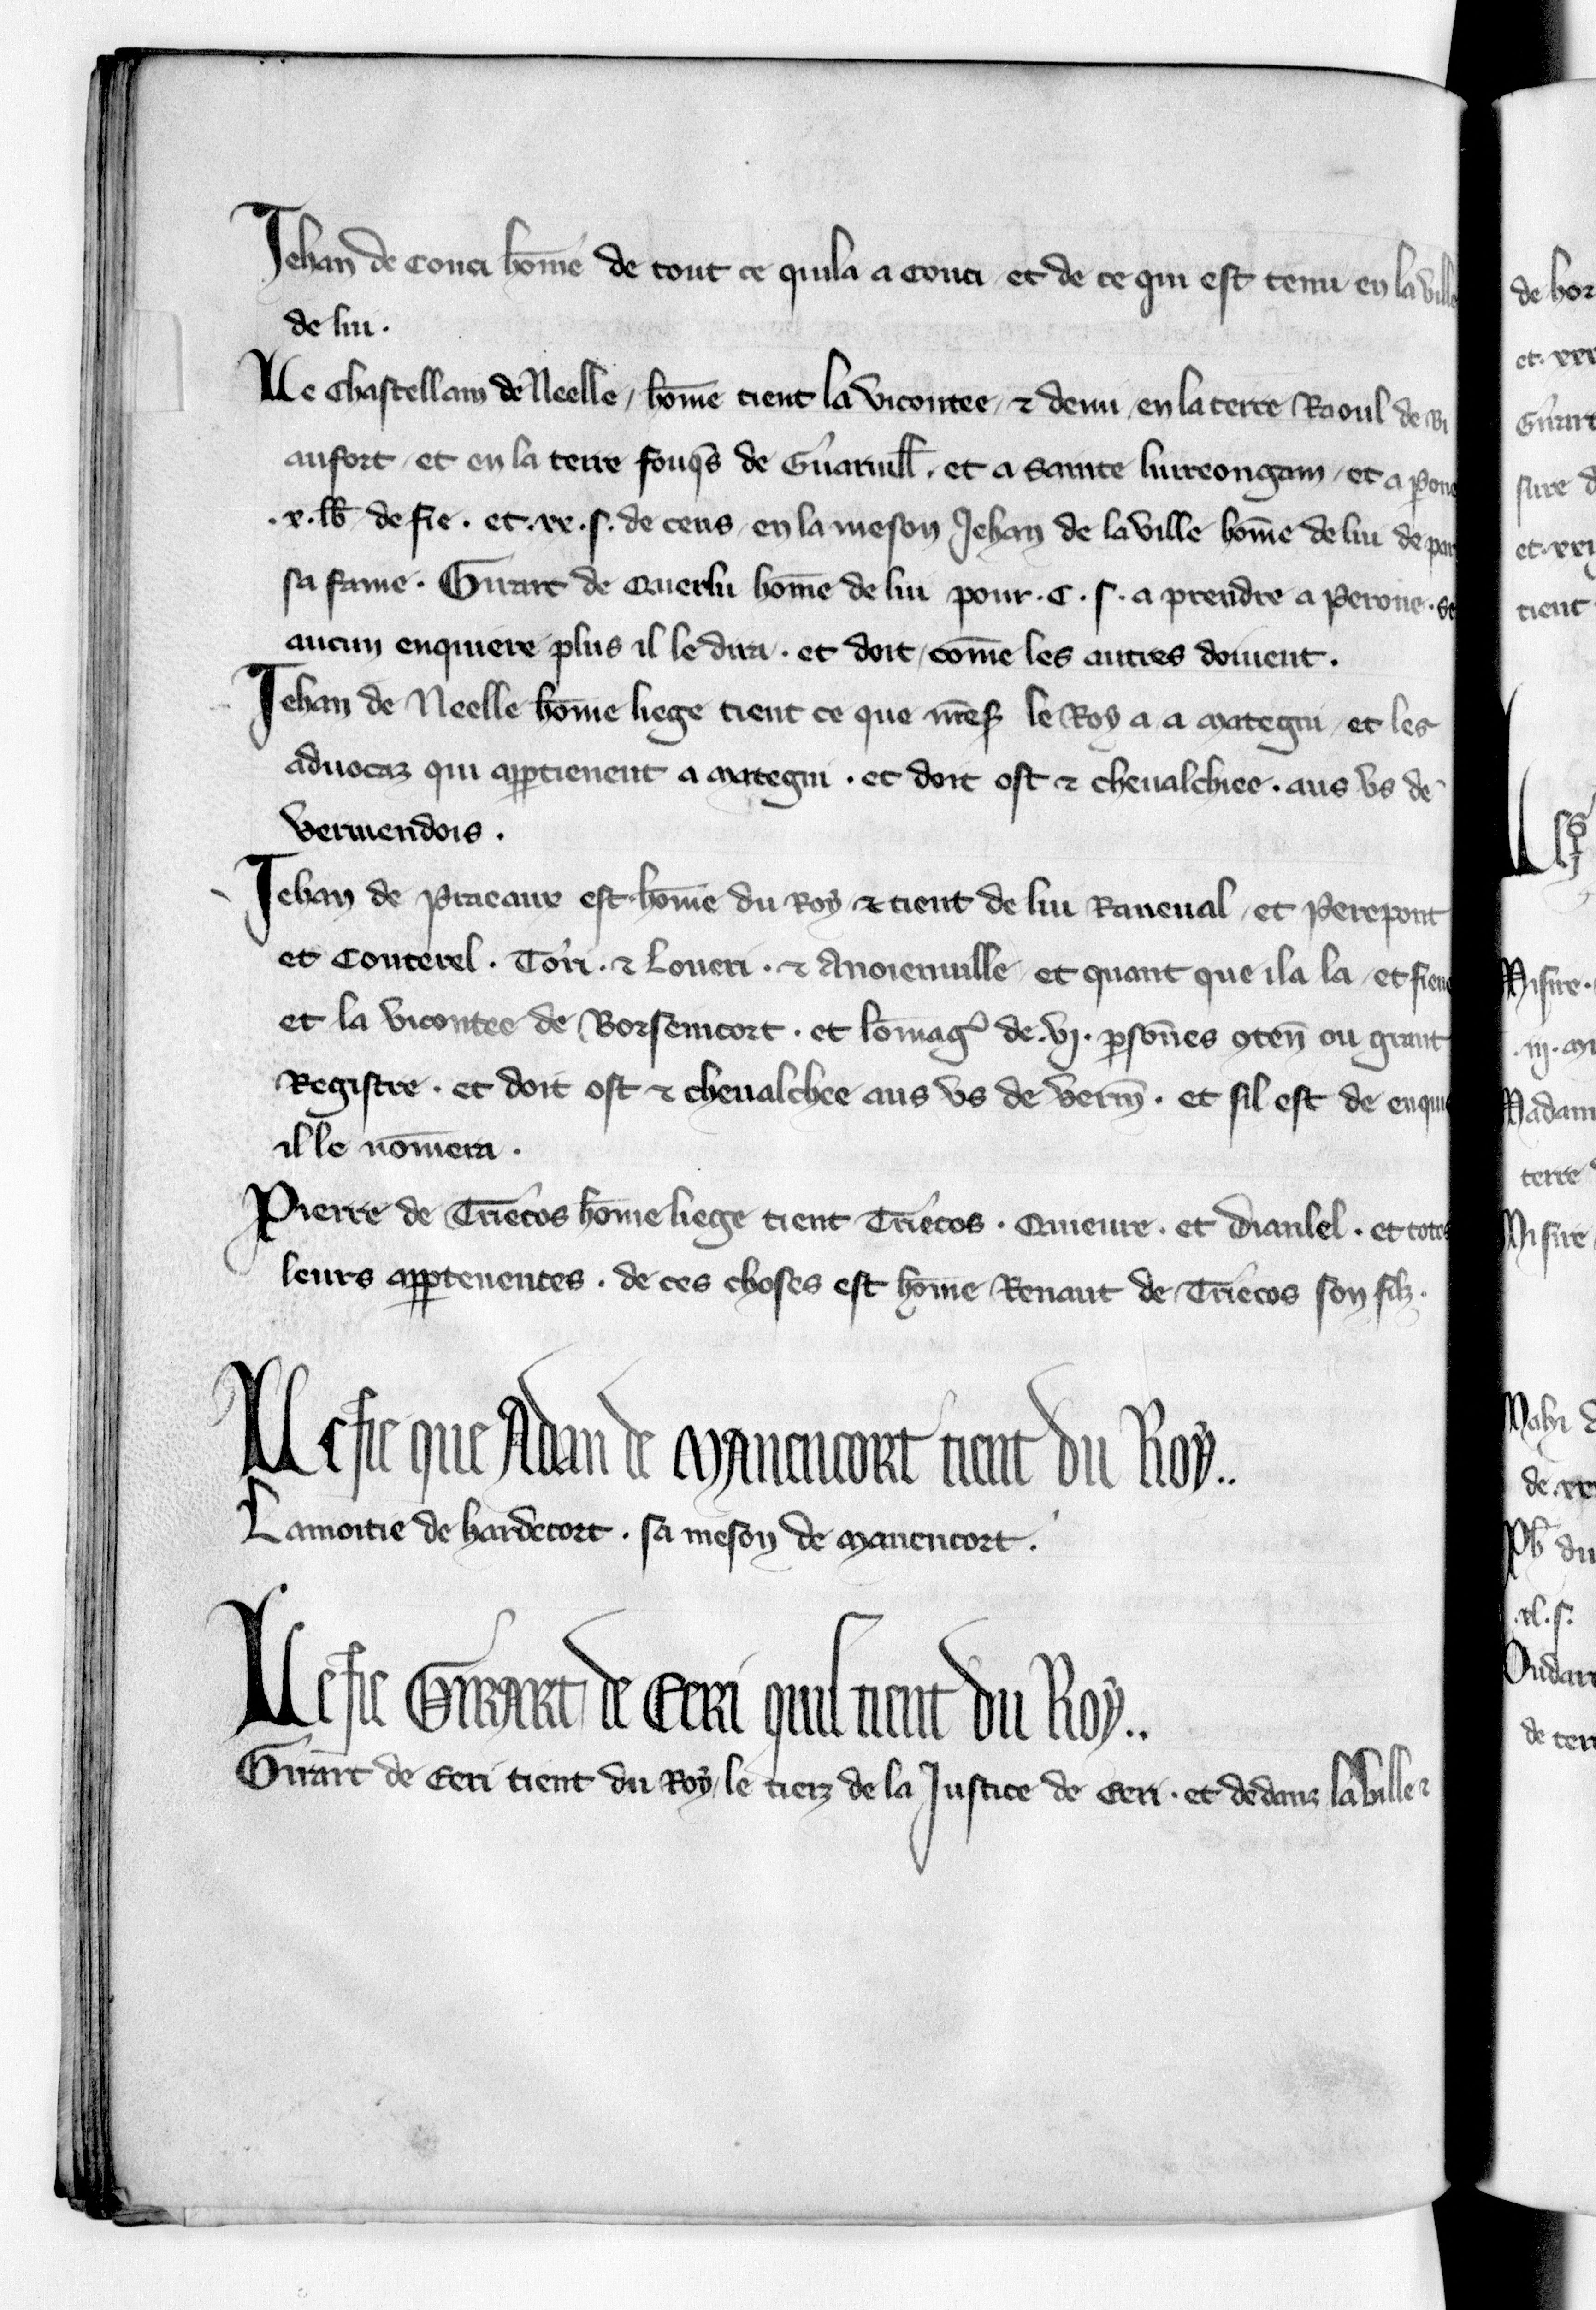 Jehan de couci hōme de tout ce quil a a couci et de ce qui est tenu en la ville
de lui.
Le Chastellain de Neelle / hōme tient la vicontee / ⁊ demi / en la terre Raoul de Bi
aufort / et en la terre fouq̄s de Guaruill̄. et a Sainte liureongain / et a peron
.x. lb̄ de fie. et .xx. s. de cens / en la meson Jehan de la ville hōme de lui de par
sa fame. Girart de Querlu hōme de lui pour .C. s. a prendre a Perone. Se
aucun enquiere plus il le dira. et doit / cōme les autres doiuent.
Jehan de Neelle hōme liege tient ce que mes̄ le Roy a a Mategni / et les
aduocaz qui apptienent a Mategni. et doit ost ⁊ cheualchiee. aus vs de
vermendois.
Jehan de Praeaux est hōme du Roy / ⁊ tient de lui Raneual / et Perepont
et Conterel. Tori. ⁊ Loueri. ⁊ Anoienuille / et quant que il a la / et fieu
et la vicontee de Borsencort. et lōmag̾ de .vj. psōnes 9ten̄ ou grant
Registre. et doit ost ⁊ cheualchee aus vs de verm̄. et sil est de enqui
il le nōmera.
Pierre de Triecos hōme liege tient Triecos. Quieure. et Dianlel. et totes
leurs apptenentes. de ces choses est hōme Renaut de Triecos son filz.
Le fie que Adan de Manencort tient du Roy..
La moitie de hardecort. sa meson de Manencort.
Le fie Girart de Eeri quil tient du Roy..
Girart de Eeri tient du Roy / le tierz de la Justice de Eeri. et dedanz la ville ⁊
de hor
et. xxx
Girart
sure d
et. xxij
tient
Misire.
.iij.
Madam
terre
Misire
Mahi d
de .xx
Ph̄ du
.xl. s.
Oudart
de terr